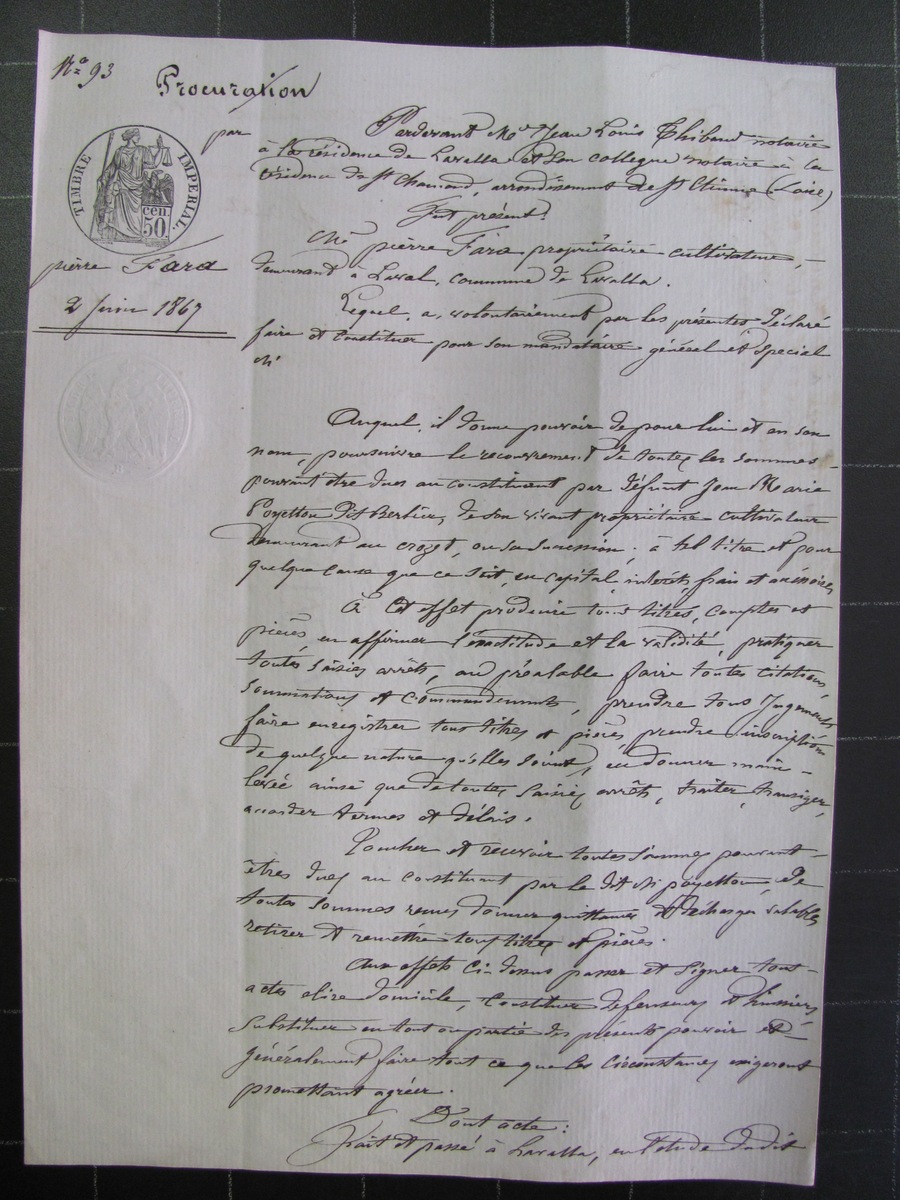 N° 93
Procuration
par
TIMBRE IMPERIAL
50 cen.
pierre Fara
2 Juin 1867
Pardevant Me Jean Louis Thibaud notaire
à la résidence de Lavalla et son collegue notaire à la
résidence de St Chamond, arrondissement de St Etienne (Loire)
Fut présent:
Me pierre Fara propriétaire cultivateur,
demeurant à Laval, commune de Lavalla.
Lequel a, volontairement par les présentes déclaré
faire et constituer pour son mandataire général et spécial
M
Auquel, il donne pouvoir de pour lui et en son
nom, poursuivre le recouvrement de toutes les sommes
pouvant être dues au constituant par défunt Jean Marie
Poyetton dit Berlier, de son vivant propriétaire cultivateur
demeurant au crozet, ou sa succession; à tel titre et pour
quelque cause que ce soit, en capital, intérêts, frais et accéssoires
À cet effet produire tous titres, comptes et
pièces en affirmer l'exactitude et la validité, pratiquer
toutes saisies arrêts, au préalable faire toutes citations,
sommations et commandements, prendre tous Jugements
faire enregistrer tous titres et pièces, prendre inscription
de quelque nature qu'elles soient, en donner main-
levée ainsi que de toutes saisies arrêts, traiter, transiger,
accorder termes et délais.
Toucher et recevoir toutes sommes pouvant
êtres dues au constituant par le dit M poyetton, de
toutes sommes reçues donner quittances et décharges valables
retirer et remettre tous titres et pièces.
Aux effets ci-dessus passer et signer tous
actes elire domicile, constituer defenseurs et huissiers,
substituer en tout ou partie des présents pouvoir et
généralement faire tout ce que les circonstances exigeront
promettant agréer.
Dont acte:
Fait et passé à Lavalla, en l'étude dudit